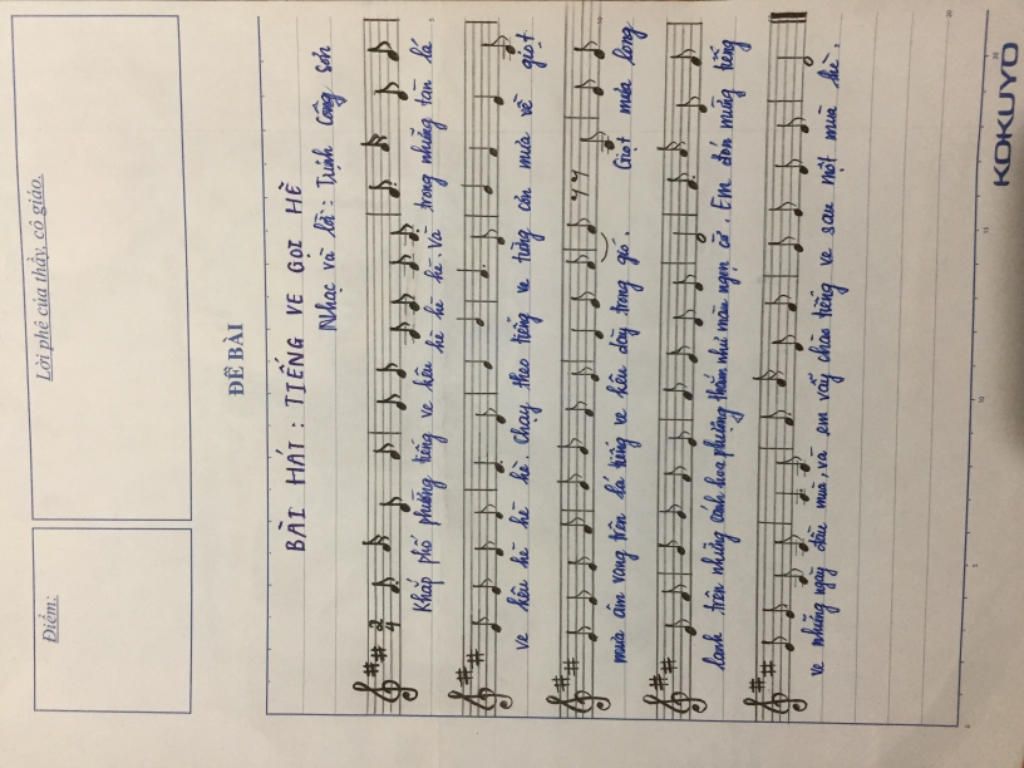 Điểm:
Lời phê của thầy, cô giáo.
ĐỀ BÀI
BÀI HÁT : TIẾNG VE GỌI HÈ
Nhạc và lời : Trịnh Công Sơn
2
4
Khắp phố phường tiếng ve kêu hè hè hè. Và trong những tàn lá
ve kêu hè hè hè. Chạy theo tiếng ve từng cơn mưa về giọt
mưa âm vang trên lá tiếng ve kêu dày trong gió. Giọt mưa long
lanh trên những cánh hoa phượng thắm như màu ngọn cờ. Em đón mừng tiếng
ve những ngày đầu mùa, và em vẫy chào tiếng ve sau một mùa hè.
KOKUYO
5
10
15
20